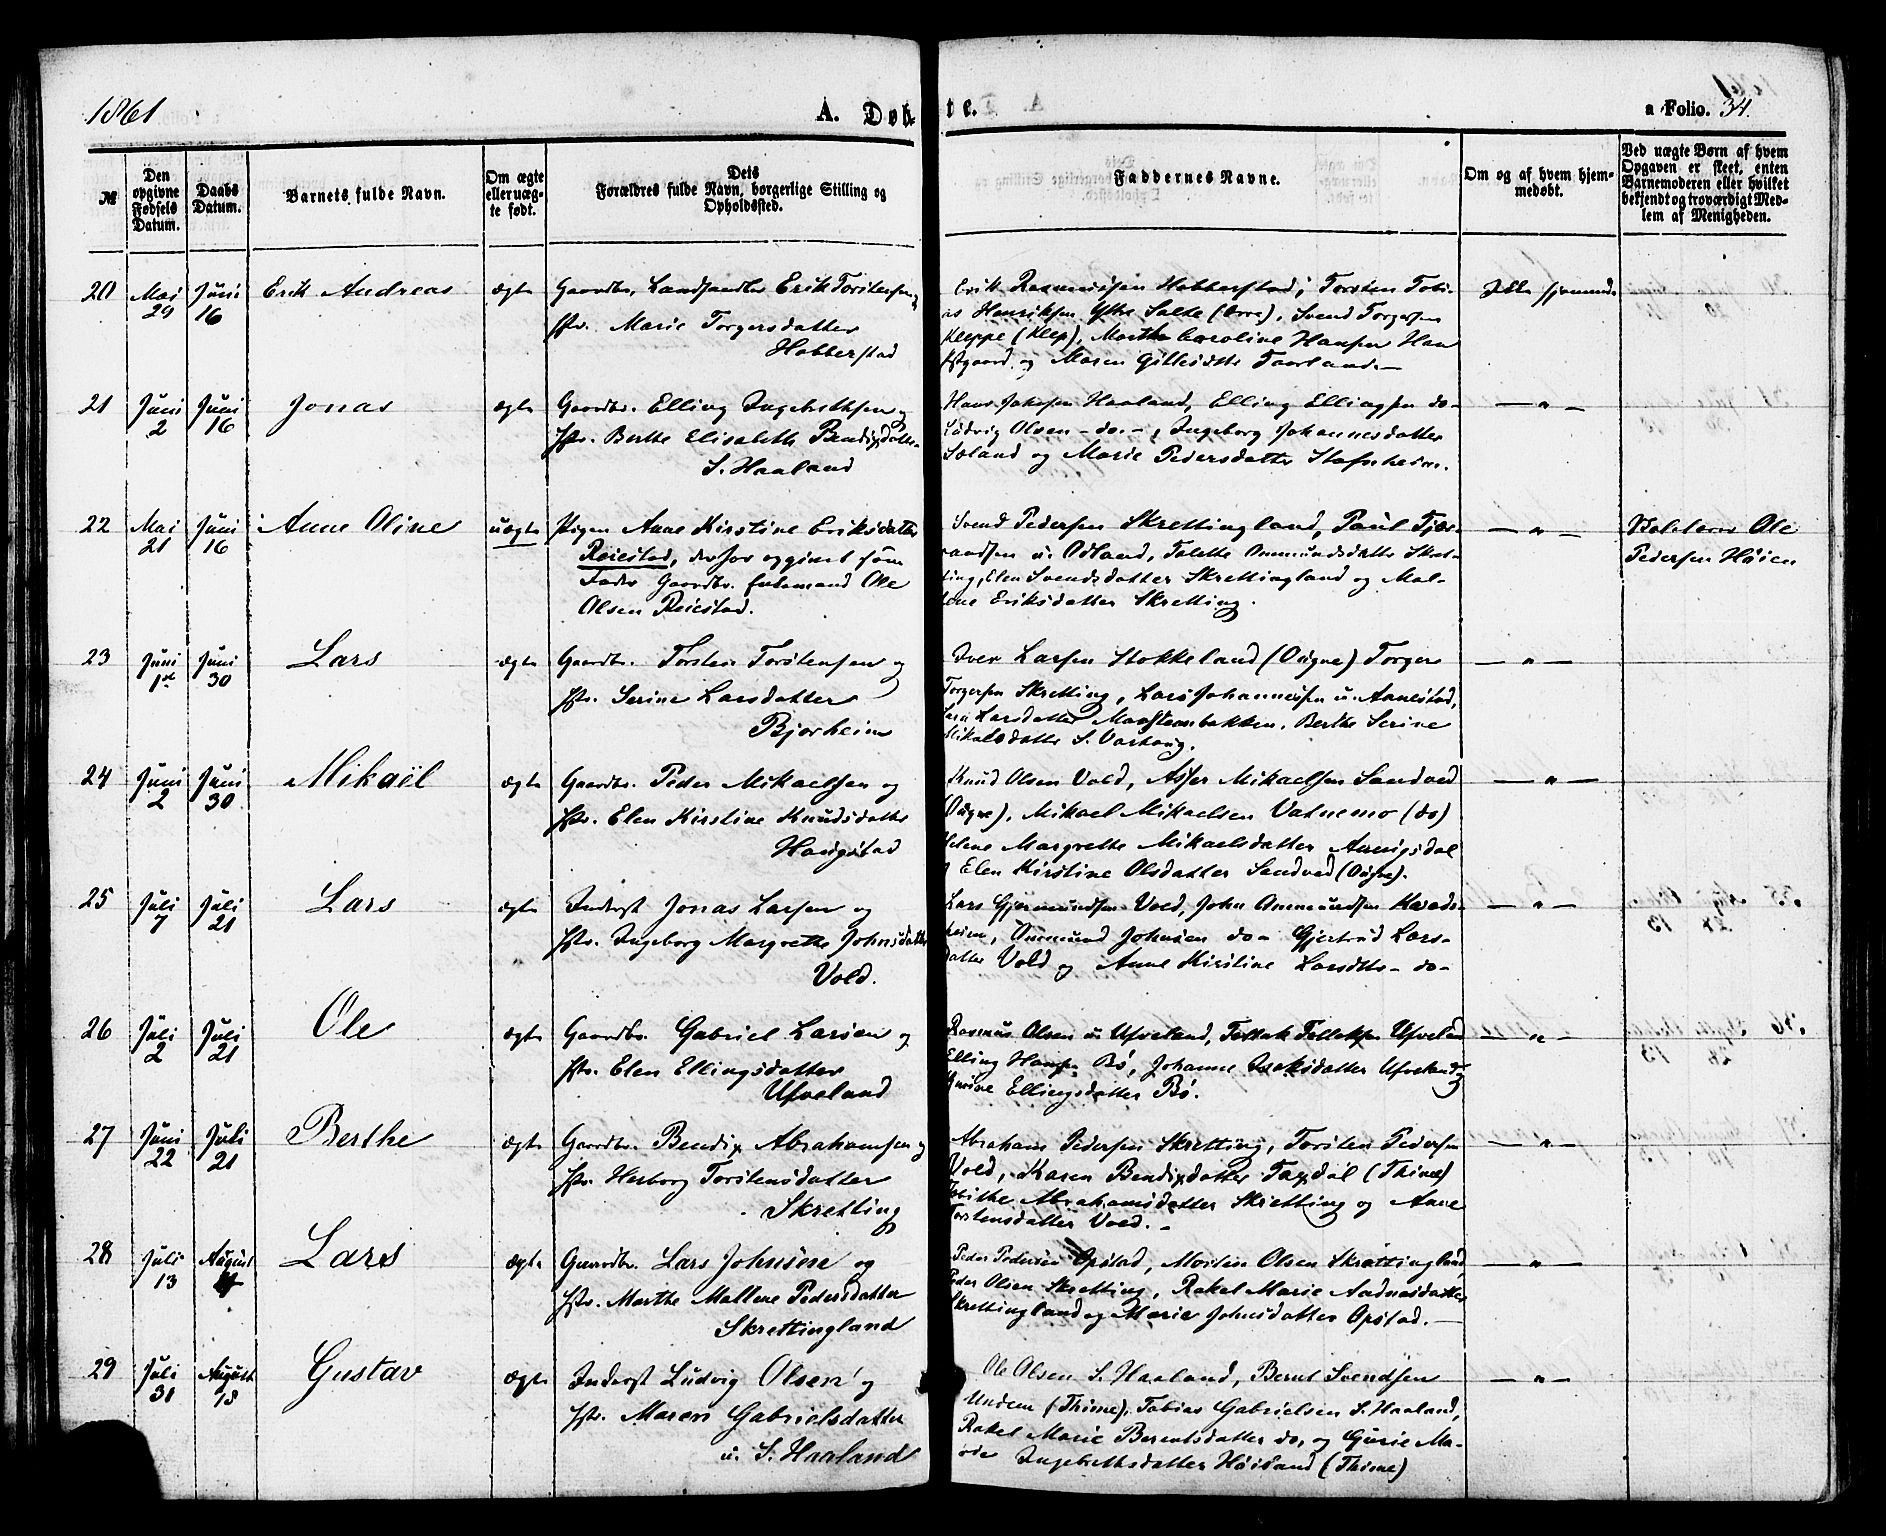 1861
A. Døbte.
a Folio. 34.
№
Den opgivne Fødsels Datum.
Daabs Datum.
Barnets fulde Navn.
Om ægte eller uægte født.
Dets Forældres fulde Navn, borgerlige Stilling og Opholdssted.
Faddernes Navne.
Om og af hvem hjemmedøbt.
Ved uægte Børn af hvem Opgaven er skeet, enten Barnemoderen eller hvilket bekjendt og troværdigt Medlem af Menigheden.
20 Mai 29 Juni 16 Erik Andreas ægte
Gaardbr. Landhandler Erik Torstensen
Hstr. Marie Torgersdatter
Hobberstad
Erik Rasmussen Hobberstad, Torsten Tobi-
as Henriksen Ytre Salte (Orre), Svend Torgersen
Kleppe (Klep), Marthe Caroline Hansen Hau
gaard og Maren Gittlesdttr Taarland. —
Ikke hjemmed.
21 Juni 2 Juni 16 Jonas ægte
Gaardbr. Elling Ingebretsen og
Hstr. Berthe Elisabeth Bendixdatter
S. Haaland
Hans Jakobsen Haaland, Elling Ellingsen do-
Ludvig Olsen - do. -, Ingeborg Johannesdatter
Søland og Marie Pedersdatter Stafnheim.
— " —
22 Mai 21 Juni 16 Anne Oline uægte
Pigen Anne Kirstine Eriksdatter
Reiestad, derfor opgivet som
Fader Gaardbr. Enkemand Ole
Olsen Reiestad.
Svend Pedersen Skrettingland, Paul Tjær-
randsen u. Odland, Talette Ommundsdatter Skret-
ting, Elen Svendsdatter Skrettingland og Mal-
lene Eriksdatter Skretting.
— " —
Ole
Pedersen Høien
23 Juni 1st Juni 30 Lars ægte
Gaardbr. Torsten Torstensen og
Hstr. Serine Larsdatter
Bjorheim
Iver Larsen Stokkeland (Ougne) Torger
Torgersen Skretting, Lars Johannessen u. Aanestad,
Larsdatter Berthe Serine
Mikalsdatter S. Varhoug.
— " —
24 Juni 2 Juni 30 Mikaël ægte
Gaardbr. Peder Mikaelsen og
Hstr. Elen Kirstine Knudsdatter
Haugstad
Knud Olsen Vold, Asser Mikaelsen Sandved
(Ougne), Mikael Mikaelsen Vatnemo (do)
Helene Margrethe Mikaelsdatter
og Elen Kirstine Olsdatter Sandved (Ougne).
— " —
25 Juli 7 Juli 21 Lars ægte
Inderst Jonas Larsen og
Hstr. Ingeborg Margrethe Johnsdatter
Vold.
Lars Gjermundsen Vold, John Ommundsen
Ommund Johnsen do - Gjertrud Lars-
datter Vold og Anne Kirstine Larsdttr - do -
— " —
26 Juli 2 Juli 21 Ole ægte
Gaardbr. Gabriel Larsen og
Hstr. Elen Ellingsdatter
Ufveland
Rasmus Olsen u. Ufveland, Tollak Tollaksen Ufveland
Elling Hansen Bø, Johanne Ufveland og
Ellingsdatter Bø.
— " —
27 Juni 22 Juli 21 Berthe ægte
Gaardbr. Bendix Abrahamsen og
Hstr. Herborg Torstensdatter
Skretting
Abraham Pedersen Skretting, Torsten Pedersen
Vold, Karen Bendixdatter Taxdal (Thime)
Abrahamsdatter Skretting og Anne
Torstensdatter Vold. -
— " —
28 Juli 13 August 4 Lars ægte
Gaardbr. Lars Johnsen og
Hstr. Marthe Mallene Pedersdatter
Skrettingland
Peder Pedersen Opstad, Morten Olsen Skrettingland,
Peder Olsen Skretting, Rakel Marie Aadnesdatter
Skrettingland og Marie Johnsdatter Opstad. —
— " —
29 Juli 31 August 18 Gustav ægte
Inderst Ludvig Olsen og
Hstr. Maren Gabrielsdatter
u. S. Haaland
Ole Olsen S. Haaland, Bernt Svendsen
Undem (Thime), Tobias Gabrielsen S. Haaland,
Rakel Marie Berentsdatter do, og Gurie Ma-
Ingebretsdatter Høiland (Thime)
— " —